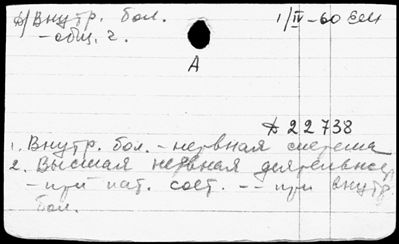 Д/Внутр. бол. 1/IV-60 Сен
- общ. ч.
А
Д 22738
1. Внутр. бол. - нервная система
2. Высшая нервная деятельност
- при пат. сост. -- при внутр.
бол.